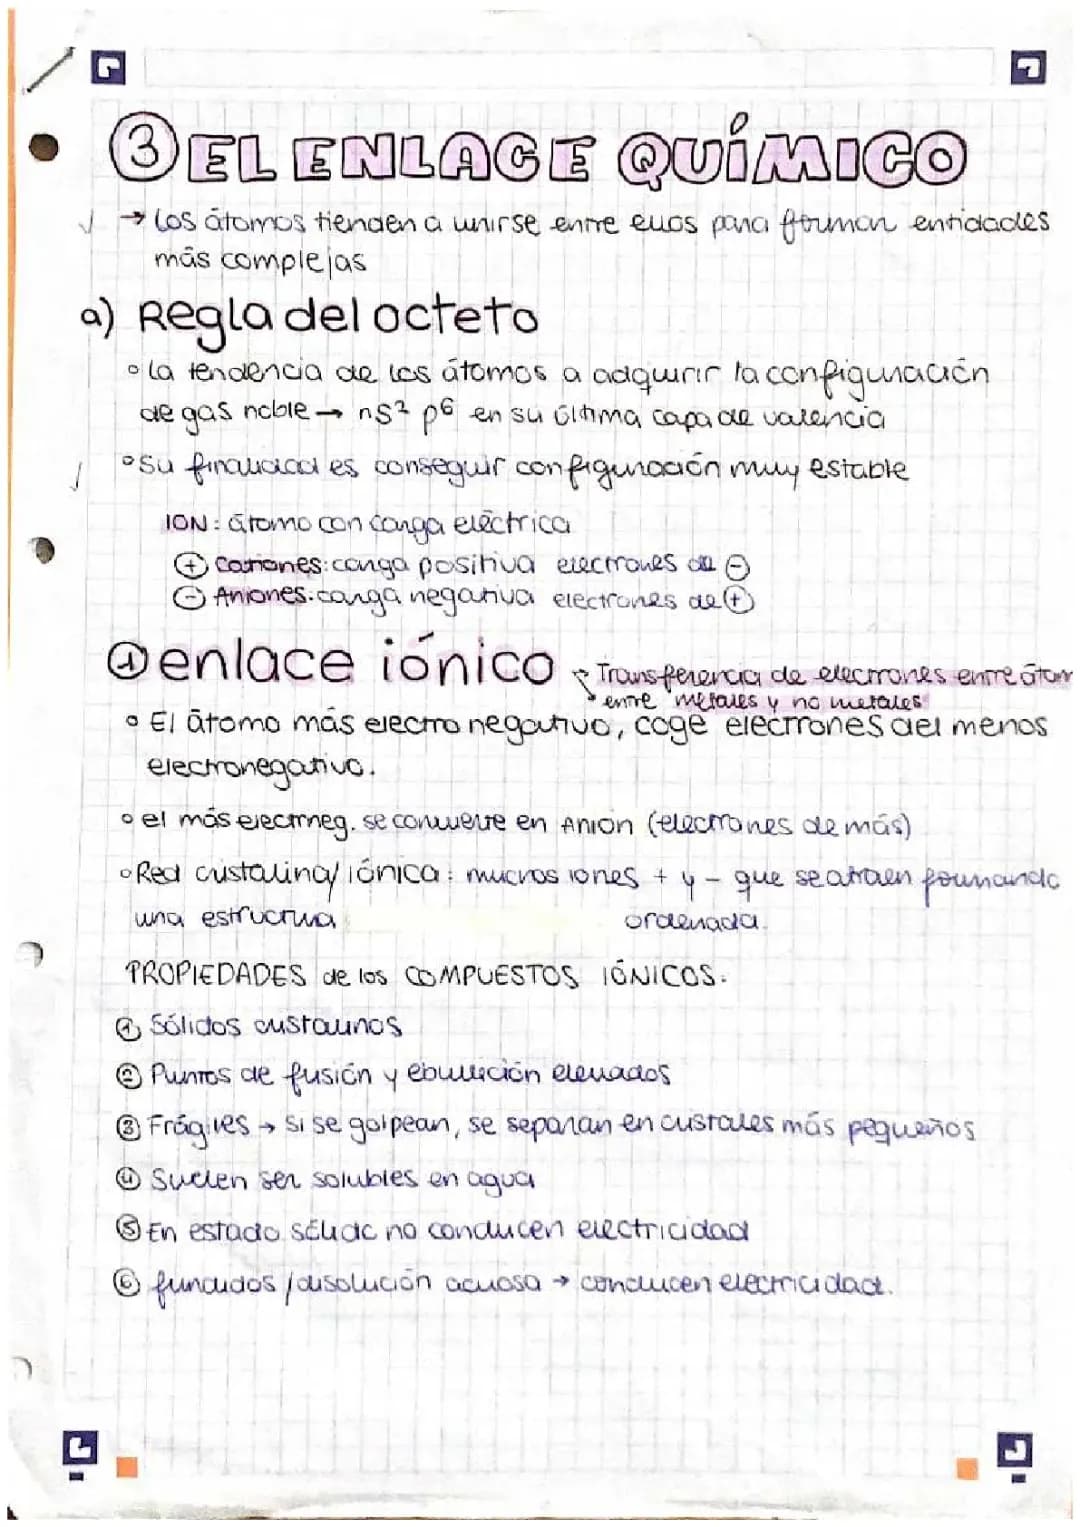 ③ EL ENLACE QUÍMICO
→ Los átomos tienden a unirse entre ellos para formar entidades
más complejas
a) Regla del octeto
° La tendencia de los átomos a adquirir la configuración
de gas noble → ns² p⁶ en su última capa de valencia
° Su finalidad es conseguir configuración muy estable
ION: átomo con carga eléctrica
⊕ Cationes: carga positiva electrones de ⊖
⊖ Aniones: carga negativa electrones de ⊕
① enlace iónico → Transferencia de electrones entre átom
• entre metales y no metales
° El átomo más electronegativo, coge electrones del menos
electronegativo.
° el más electrneg. se convierte en Anión (electrones de más)
° Red cristalina/iónica: muchos iones + y - que se atraen formando
una estructura ordenada.
PROPIEDADES de los COMPUESTOS IÓNICOS.
① Sólidos cristalinos
② Puntos de fusión y ebullición elevados
③ Frágiles → si se golpean, se separan en cristales más pequeños
④ Suelen ser solubles en agua
⑤ En estado sólido no conducen electricidad
⑥ fundidos / disolución acuosa → conducen electricidad.